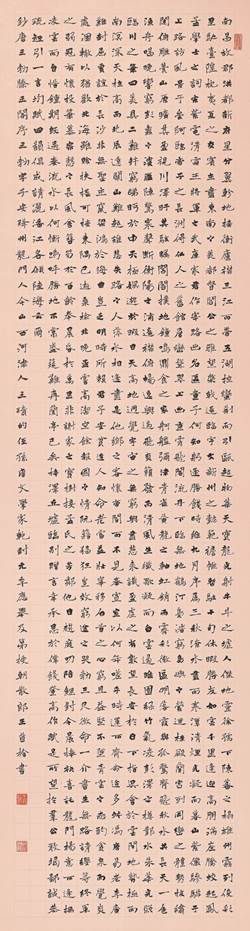 南昌故郡洪都新府星分翼軫地接衡廬襟三江而帶五湖控蠻荊而引甌越物華天寶龍光射牛斗之墟人傑地靈徐孺下陳蕃之榻雄州霧列俊彩
星馳臺隍枕夷夏之交賓主盡東南之美都督閻公之雅望棨戟遙臨宇文新州之懿範襜帷暫駐十旬休暇勝友如雲千里逢迎高朋滿座騰蛟起鳳
孟學士之詞宗紫電青霜王將軍之武庫家君作宰路出名區童子何知躬逢勝餞時維九月序屬三秋潦水盡而寒潭清煙光凝而暮山紫儼驂騑於
上路訪風景於崇阿臨帝子之長洲得仙人之舊館層巒聳翠上出重霄飛閣流丹下臨無地鶴汀鳧渚窮島嶼之縈迴桂殿蘭宮列岡巒之體勢披繡
闥俯雕甍山原曠其盈視川澤紆其駭矚閭閻撲地鐘鳴鼎食之家舸艦迷津青雀黃龍之舳虹銷雨霽彩徹區明落霞與孤鶩齊飛秋水共長天一色
漁舟唱晚響窮彭蠡之濱雁陣驚寒聲斷衡陽之浦遙襟俯暢逸興遄飛爽籟發而清風生纖歌凝而白雲遏睢園綠竹氣凌彭澤之樽鄴水朱華光照
臨川之筆四美具二難并窮睇眄於中天極娛遊於暇日天高地迥覺宇宙之無窮興盡悲來識盈虛之有數望長安於日下目吳會於雲間地勢極而
南溟深天柱高而北辰遠關山難越誰悲失路之人萍水相逢盡是他鄉之客懷帝閽而不見奉宣室以何年嗟乎時運不齊命途多舛馮唐易老李廣
難封屈賈誼於長沙非無聖主竄梁鴻於海曲豈乏明時所賴君子見機達人知命老當益壯寧移白首之心窮且益堅不墜青雲之志酌貪泉而覺爽
處涸轍以猶歡北海雖賒扶搖可接東隅已逝桑榆非晚孟嘗高潔空餘報國之情阮籍猖狂豈效窮途之哭勃三尺微命一介書生無路請纓等終軍
之弱冠有懷投筆慕宗愨之長風舍簪笏於百齡奉晨昏於萬里非謝家之寶樹接孟氏之芳鄰他日趨庭叨陪鯉對今茲捧袂喜托龍門楊意不逢撫
凌雲而自惜鍾期既遇奏流水以何慚嗚乎勝地不常盛筵難再蘭亭已矣梓澤丘墟臨別贈言幸承恩於偉餞登高作賦是所望於群公敢竭鄙誠恭
疏短引一言均賦四韻俱成請灑潘江各傾陸海云爾
鈔唐王勃滕王閣序王勃字子安絳州龍門人今山西河津人王績的侄孫唐文學家應舉及第授朝散郎王書